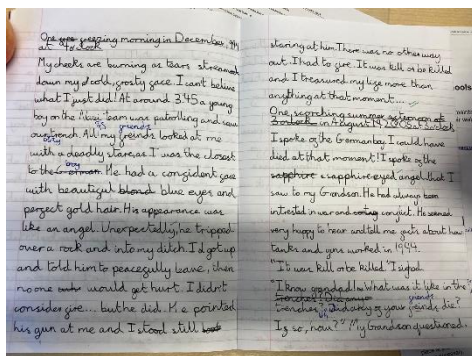 One freezing morning in December, 1944
at 4 o'clock
My cheeks are burning as tears streamed
down my cold, frosty face. I cant believe
what I just did! At around 3.45 a young
boy on the "kiwi" team was patrolling and saw
our trench. All my friends looked at me
with a deadly stare, as I was the closest
to the boy. He had a confident face
with beautiful blond blue eyes and
perfect gold hair. His appearance was
like an angel. Unexpectedly, he tripped
over a rock and into my ditch. I got up
and told him to peacefully leave, then
no one would get hurt. I didn't
consider fire.... but he did. He pointed
his gun at me and I stood still
staring at him. There was no other way
out. I had to fire. It was kill or be killed
and I treasured my life more than
anything at that moment....
One scorching summer afternoon at
in August
I spoke of the German boy. I could have
died at that moment! I spoke of the
sapphire sapphire-eyed angel that I
saw to my Grandson. He had always been
intrested in war and conflict. He seemed
very happy to hear and tell me facts about how
tanks and guns worked in 1944
"It was kill or be killed" I sighed
"I know grandad! What was it like in the
trenches? Did any of your friends die?
If so, how?" My Grandson questioned.
ools